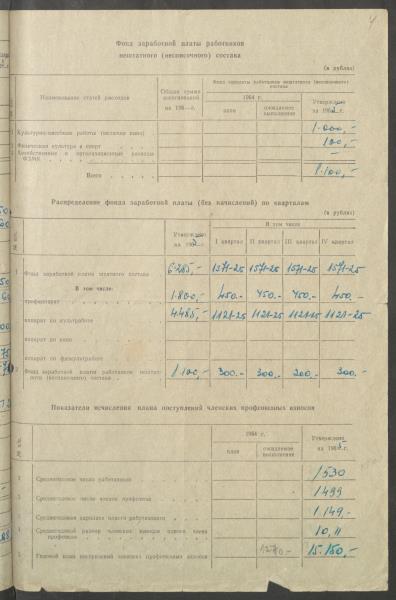 4
Фонд заработной платы работников
нештатного (несписочного) состава
(в рублях)
Наименование статей расходов
Общая сумма
на 196 г.
Фонд зарплаты работников нештатного (несписочного)
состава
1964 г.
план
ожидаемое
выполнение
Утверждено
на 196 г.
1 Культурно-массовая работа (включая кино) 1.000,-
Физическая культура и спорт 100,-
Хозяйственные и организационные расходы
ФЗМК -
Всего 1.100,-
Распределение фонда заработной платы (без начислений) по кварталам
(в рублях)
№ п.п.
Утверждено
на 196 г.
В том числе
I квартал II квартал III квартал IV квартал
1 Фонд заработной платы штатного состава 6.285,- 1571-25 1571-25 1571-25 1571-25
В том числе:
профаппарат 1.800,- 450.- 450.- 450.- 450.-
аппарат по культработе 4.485,- 1121-25 1121-25 1121-25 1121-25
аппарат по кино
аппарат по физкультработе
2 Фонд заработной платы работников нештат-
ного (несписочного) состава 1.100,- 300.- 300.- 200.- 300.-
Показатели исчисления плана поступлений членских профсоюзных взносов
№ п.п.
1964 г.
план
ожидаемое
выполнение
Утверждено
на 1965 г.
1 Среднегодовое число работающих 1530
2 Среднегодовое число членов профсоюза 1499
3 Среднегодовая зарплата одного работающего 1.149.-
4 Среднегодовой размер членских взносов одного члена
профсоюза 10,11
5 Годовой план поступлений членских профсоюзных взносов 15.150,-